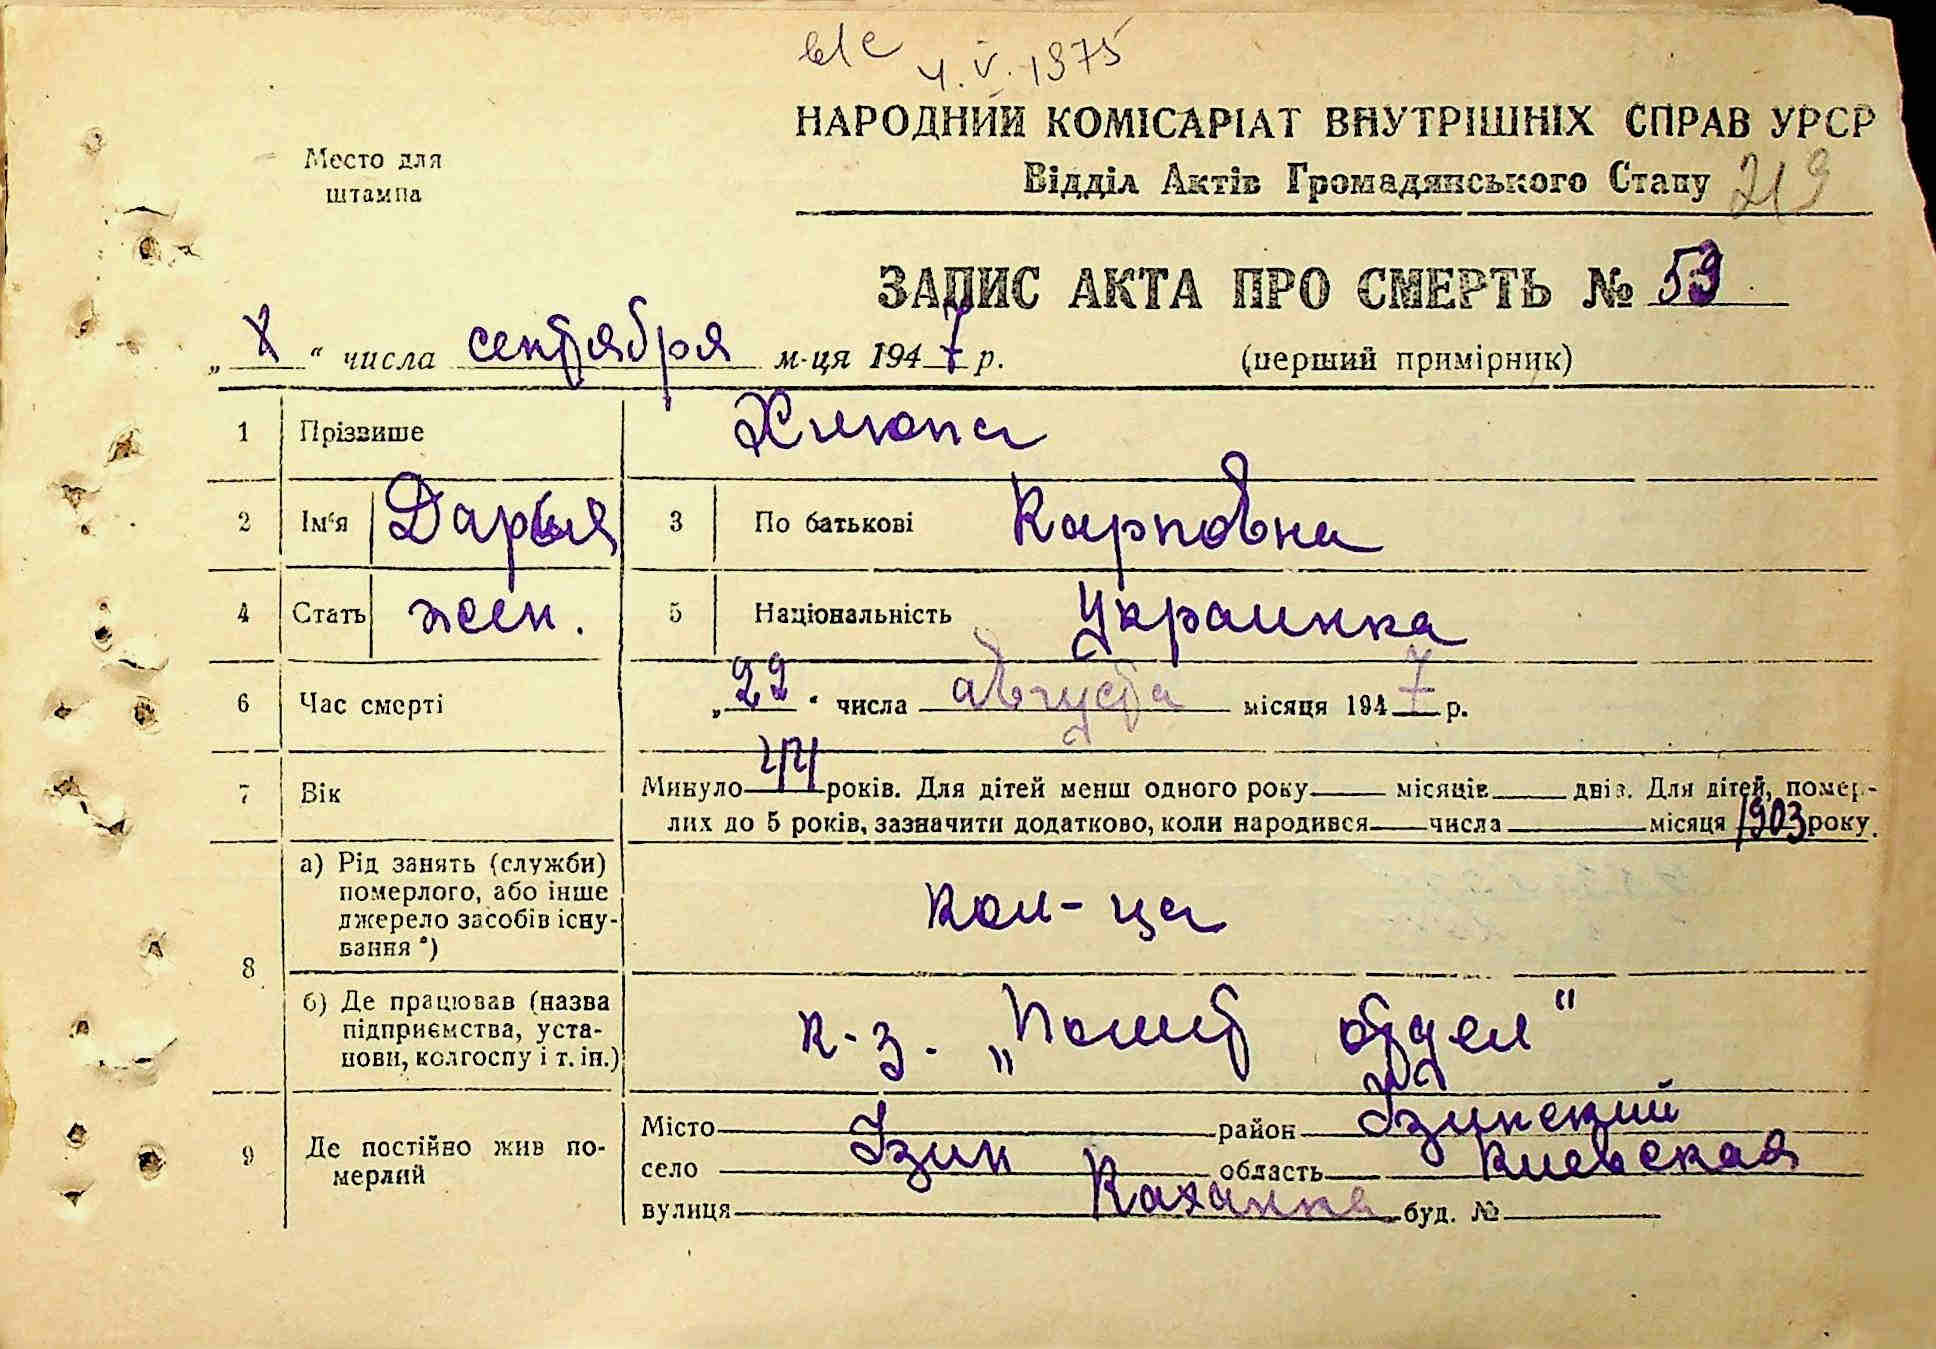 4.V.1975
НАРОДНИЙ КОМІСАРІАТ ВНУТРІШНІХ СПРАВ УРСР
Место для штампа
Відділ Актів Громадянського Стану 219
ЗАПИС АКТА ПРО СМЕРТЬ № 59
„ “ числа сентября м-ця 1947 р. (перший примірник)
1 Прізвише
2 Ім‘я Дарья 3 По батькові Карповна
4 Стать жен. 5 Національність Украинка
6 Час смерті „22“ числа августа місяця 1947 р.
7 Вік Минуло 44 років. Для дітей менш одного року місяців днів. Для дітей, помер-
лих до 5 років, зазначити додатково, коли народився числа місяця 1903 року.
8 а) Рід занять (служби)
померлого, або інше
джерело засобів існу-
вання *)
кол-ца
б) Де працював (назва
підприємства, уста-
нови, колгоспу і т. ін.)
к-з. „Полит отдел“
9 Де постійно жив по-
мерлий
Місто район Узинский
село Узин область Киевская
вулиця буд. №